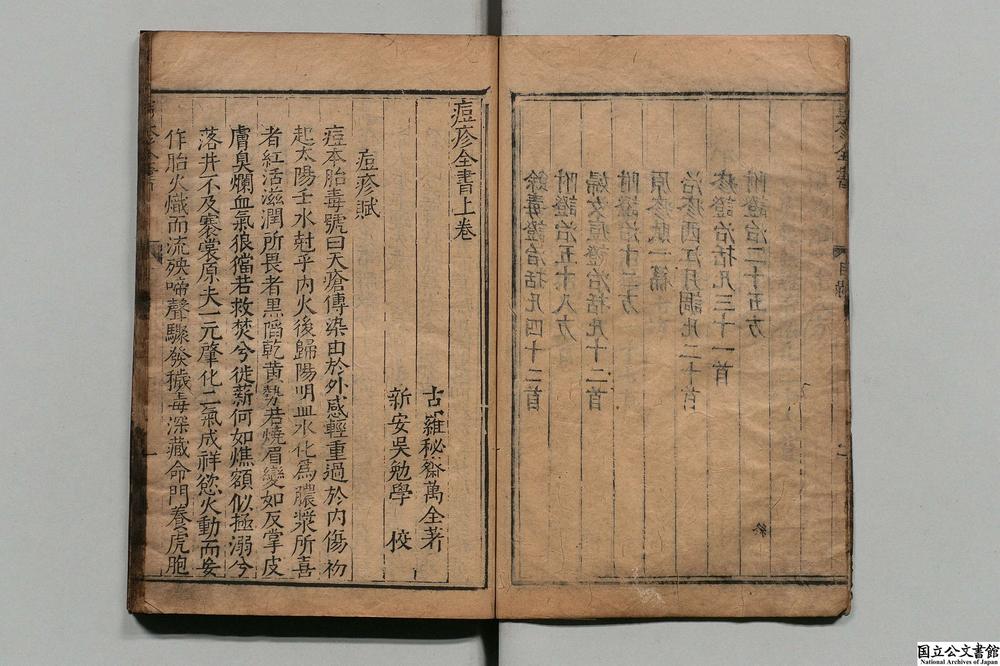 餘毒證治括凡四十二首
附證治五十八方
婦女痘證治括凡十二首
附證治十二方
原疹賦一篇
治疹西江月調凡二十首
疹證治括凡三十一首
附證治二十五方
終
痘疹全書上卷
古羅秘齋萬全著
新安吳勉學 校
痘疹賦
痘本胎毒號曰天瘡傳染由於外感輕重過於內傷初
起太陽壬水尅乎內火後歸陽明血水化爲膿漿所喜
者紅活滋潤所畏者黑陷乾黃勢若燒眉變如反掌皮
膚臭爛血氣狼儅若救焚兮徙薪何如燋額似拯溺兮
落井不及褰裳原夫一元肇化二氣成祥慾火動而妄
作胎火熾而流殃啼聲驟發穢毒深藏命門養虎胞
国立公文書館
National Archives of Japan